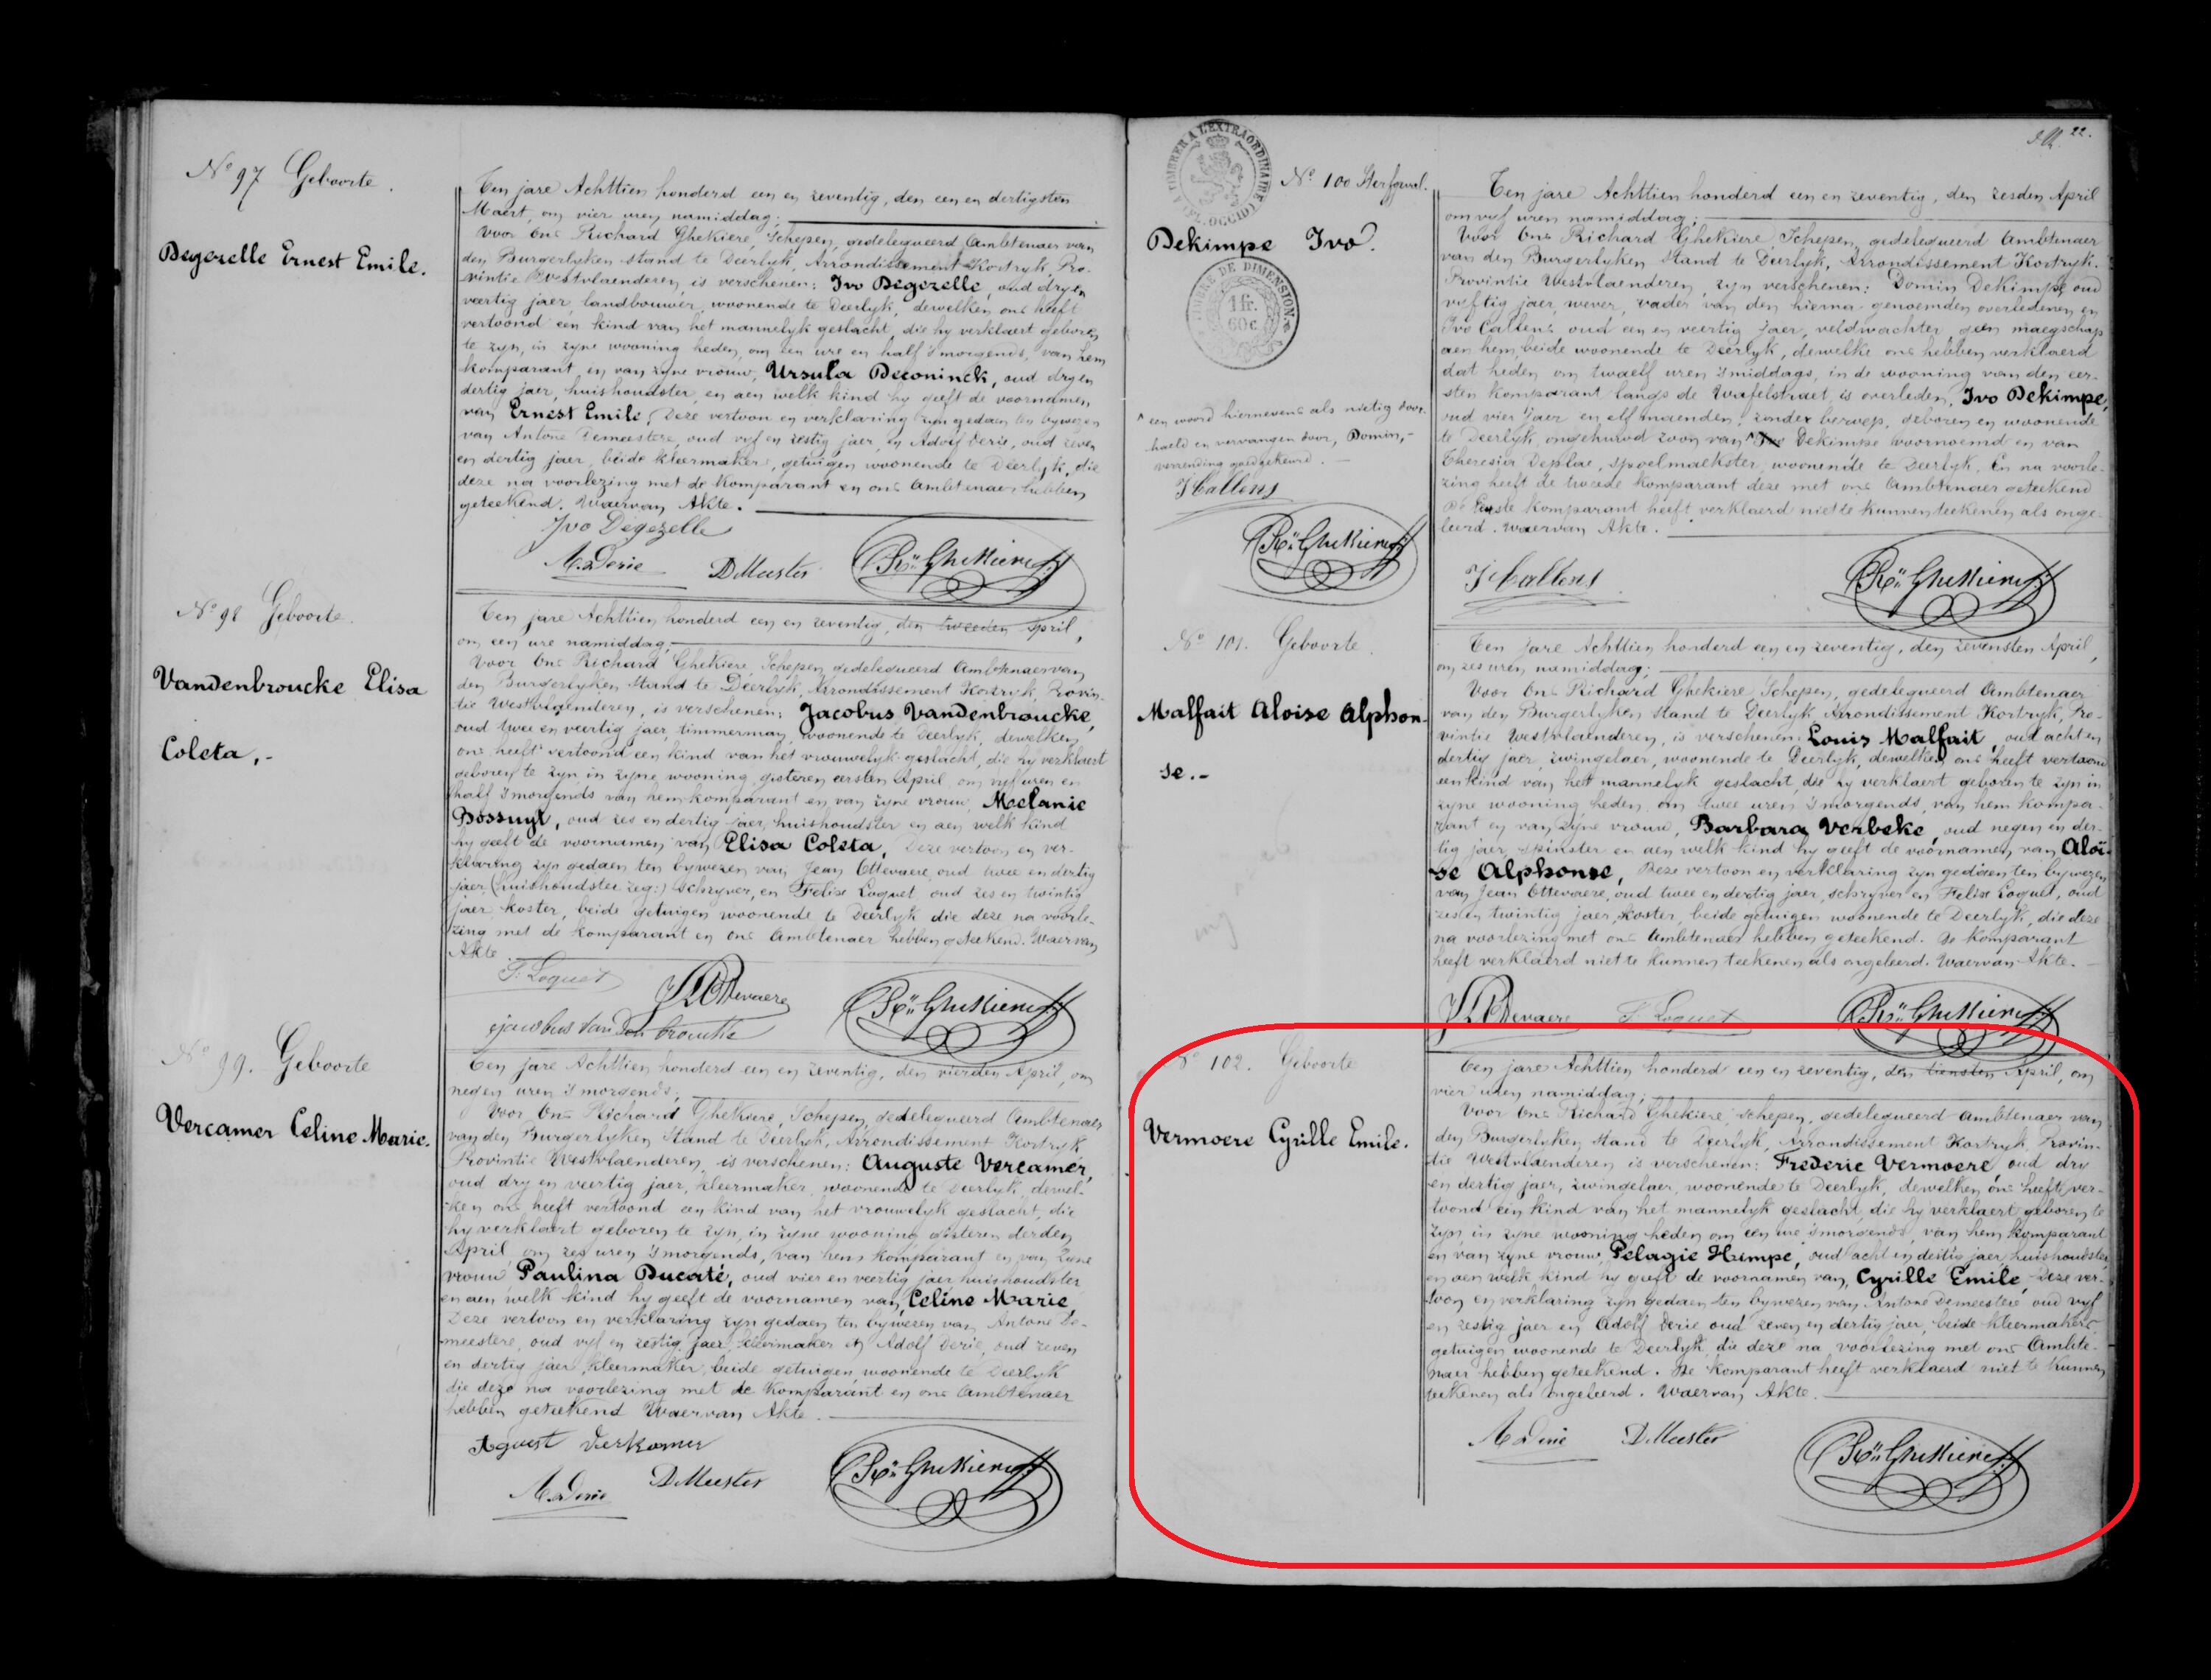 N° 97 Geboorte.
Degezelle Ernest Emile.
Ten jare Achttien honderd een en zeventig, den een en dertigsten
Maert, om vier uren namiddag;
Voor Ons Richard Ghekiere, Schepen, gedelegueerd Ambtenaer van
den Burgerlyken Stand te Deerlyk, Arrondissement Kortryk, Pro-
vintie Westvlaenderen, is verschenen: Ivo Degezelle, oud dry en
veertig jaer, landbouwer, woonende te Deerlyk, dewelken ons heeft
vertoond een kind van het mannelyk geslacht, die hy verklaert geboren
te zyn, in zyne wooning heden, om een ure en half 's morgends, van hem
komparant, en van zyne vrouw, Ursula Deconinck, oud dry en
dertig jaer, huishoudster, en aen welk kind hy geeft de voornamen
van Ernest Emile, Deze vertoon en verklaring zyn gedaen ten bywezen
van Antone Demeestere, oud vyf en zestig jaer, en Adolf Derie, oud zeven
en dertig jaer, beide kleermakers, getuigen woonende te Deerlyk, die
deze na voorlezing met de komparant en ons Ambtenaer hebben
geteekend. Waervan Akte.
Ivo Degezelle
A. Derie DMeester Rd Ghekiere
N° 98 Geboorte.
Vandenbroucke Elisa
Coleta,-
Ten jare Achttien honderd een en zeventig, den tweeden April,
om een ure namiddag,
Voor Ons Richard Ghekiere, Schepen, gedelegueerd Ambtenaer van
den Burgerlyken Stand te Deerlyk, Arrondissement Kortryk, Provin-
tie Westvlaenderen, is verschenen: Jacobus Vandenbroucke,
oud twee en veertig jaer, timmerman, woonende te Deerlyk, dewelken
ons heeft vertoond een kind van het vrouwelyk geslacht, die hy verklaert
geboren te zyn, in zyne wooning, gisteren eersten April, om vyf uren en
half 's morgends van hem komparant en van zyne vrouw, Melanie
Bossuyt, oud zes en dertig jaer, huishoudster en aen welk kind
hy geeft de voornamen van Elisa Coleta, Deze vertoon en ver-
klaring zyn gedaen ten bywezen van Jean Ottevaere, oud twee en dertig
jaer (huishoudster zeg:) schryver, en Felix Loquet, oud zes en twintig
jaer, koster, beide getuigen woonende te Deerlyk die deze na voorle-
zing met de komparant en ons Ambtenaer hebben geteekend. Waervan
Akte
F. Loquet JLOttevaere
Jacobus Vandenbroucke Rd Ghekiere
N° 99. Geboorte
Vercamer Celine Marie.
Ten jare Achttien honderd een en zeventig, den vierden April, om
negen uren 's morgends;
Voor Ons Richard Ghekiere, Schepen, gedelegueerd Ambtenaer
van den Burgerlyken Stand te Deerlyk, Arrondissement Kortryk
Provintie Westvlaenderen, is verschenen: Auguste Vercamer,
oud dry en veertig jaer, kleermaker, woonende te Deerlyk, dewel-
ken ons heeft vertoond een kind van het vrouwelyk geslacht, die
hy verklaert geboren te zyn, in zyne wooning gisteren derden
April, om zes uren 's morgends, van hem komparant en van zyne
vrouw Paulina Ducaté, oud vier en veertig jaer huishoudster
en aen welk kind hy geeft de voornamen van Celine Marie,
Deze vertoon en verklaring zyn gedaen ten bywezen van Antone De-
meestere, oud vyf en zestig jaer, kleermaker en Adolf Derie, oud zeven
en dertig jaer, kleermaker, beide getuigen woonende te Deerlyk
die deze na voorlezing met de komparant en ons Ambtenaer
hebben geteekend Waervan Akte.
Agust Verkamer
A. Derie DMeester Rd Ghekiere
22.
TIMBRER A L'EXTRAORDINAIRE
N° 100 Sterfgeval.
Dekimpe Ivo.
TIMBRE DE DIMENSION
1 fr.
60 c.
Ten jare Achttien honderd een en zeventig, den zesden April
om vyf uren namiddag;
Voor Ons Richard Ghekiere, Schepen, gedelegueerd Ambtenaer
van den Burgerlyken Stand te Deerlyk, Arrondissement Kortryk.
Provintie Westvlaenderen, zyn verschenen: Domin Dekimpe, oud
vyftig jaer, wever, vader van den hierna genoemden overledenen en
Ivo Callens oud een en veertig jaer, veldwachter, geen maegschap
aen hem, beide woonende te Deerlyk, dewelke ons hebben verklaerd
dat heden om twaelf uren 's middags, in de wooning van den eer-
sten komparant langs de Wafelstraet, is overleden, Ivo Dekimpe,
oud vier jaer en elf maenden, zonder beroep, geboren en woonende
te Deerlyk, ongehuwd zoon van ^ Ivo Dekimpe voornoemd en van
Theresia Deplae, spoelmaekster, woonende te Deerlyk. En na voorle-
zing heeft de tweede komparant deze met ons Ambtenaer geteekend
De Eerste komparant heeft verklaerd niet te kunnen teekenen als onge-
leerd. Waervan Akte.
^ een woord hiernevens als nietig door-
haeld en vervangen door, Domin,-
verzending goedgekeurd.
J Callens
Rd Ghekiere
J Callens Rd Ghekiere
N° 101. Geboorte.
Malfait Aloise Alphon-
se.-
Ten jare Achttien honderd een en zeventig, den zevensten April,
om zes uren namiddag;
Voor Ons Richard Ghekiere, Schepen, gedelegueerd Ambtenaer
van den Burgerlyken Stand te Deerlyk Arrondissement Kortryk, Pro-
vintie Westvlaenderen, is verschenen: Louis Malfait, oud acht en
dertig jaer, zwingelaer, woonende te Deerlyk, dewelken ons heeft vertoond
een kind van het mannelyk geslacht, die hy verklaert geboren te zyn in
zyne wooning heden, om twee uren 's morgends, van hem kompa-
rant en van zyne vrouw, Barbara Verbeke, oud negen en der-
tig jaer, spinster en aen welk kind hy geeft de voornamen van Aloï-
se Alphonse, Deze vertoon en verklaring zyn gedaen ten bywezen
van Jean Ottevaere, oud twee en dertig jaer, schryver en Felix Loquet, oud
zes en twintig jaer, koster, beide getuigen woonende te Deerlyk, die deze
na voorlezing met ons Ambtenaer hebben geteekend. De komparant
heeft verklaerd niet te kunnen teekenen als ongeleerd. Waervan Akte.
JLOttevaere F. Loquet Rd Ghekiere
N° 102. Geboorte
Vermoere Cyrille Emile.
Ten jare Achttien honderd een en zeventig, den tiensten April, om
vier uren namiddag;
Voor Ons Richard Ghekiere, Schepen, gedelegueerd Ambtenaer van
den Burgerlyken Stand te Deerlyk, Arrondissement Kortryk, Provin-
tie Westvlaenderen is verschenen: Frederic Vermoere, oud dry
en dertig jaer, zwingelaer, woonende te Deerlyk, dewelken ons heeft ver-
toond een kind van het mannelyk geslacht, die hy verklaert geboren te
zyn, in zyne wooning heden om een ure 's morgends, van hem komparant
en van zyne vrouw, Pelagie Hempe, oud acht en dertig jaer, huishoudster
en aen welk kind hy geeft de voornamen van, Cyrille Emile, Deze ver-
toon en verklaring zyn gedaen ten bywezen van Antone Demeestere, oud vyf
en zestig jaer en Adolf Derie oud zeven en dertig jaer, beide kleermakers
getuigen woonende te Deerlyk, die deze na voorlezing met ons Ambte-
naer hebben geteekend. De komparant heeft verklaerd niet te kunnen
teekenen als ongeleerd. Waervan Akte.
A Derie DMeester Rd Ghekiere